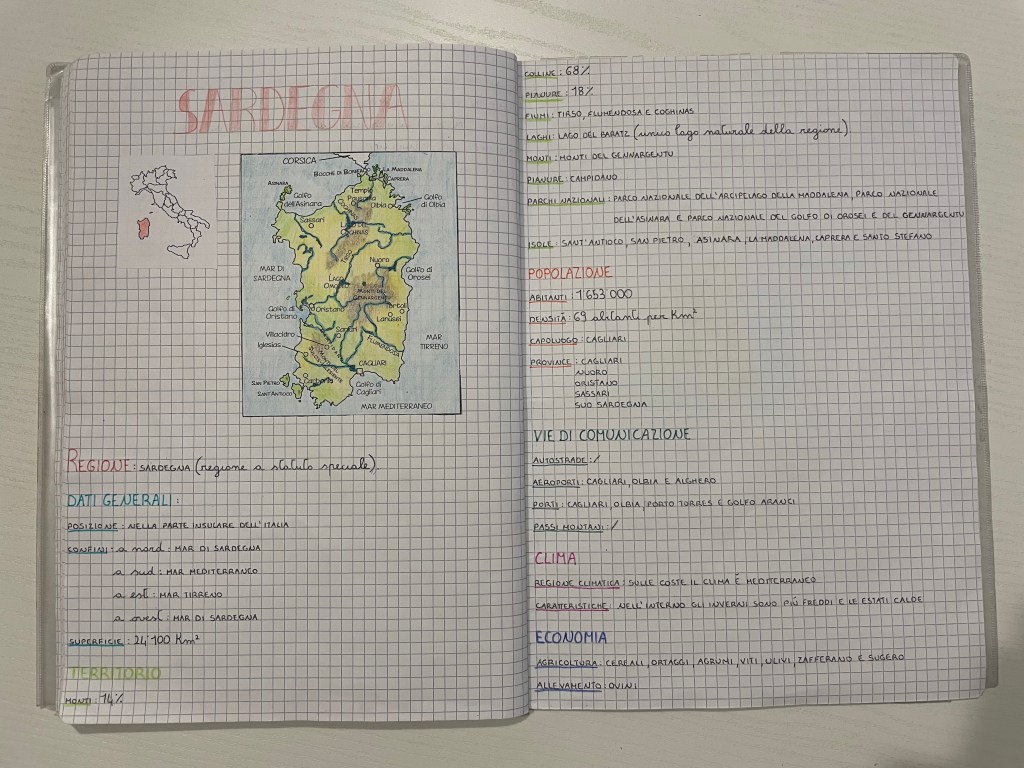 SARDEGNA
CORSICA
BOCCHE DI BONIFACIO
LA MADDALENA
CAPRERA
ASINARA
Golfo
dell'Asinara
Tempio
Pausania
Olbia
Golfo
di Olbia
Sassari
LAGO DEL
COGHINAS
TIRSO
Nuoro
MAR DI
SARDEGNA
Golfo di
Orosei
LAGO
OMODEO
MONTI DEL
GENNARGENTU
Golfo di
Oristano
Oristano
Tortolì
Lanusei
Villacidro
Sanluri
Iglesias
FLUMENDOSA
MAR
TIRRENO
CAGLIARI
Carbonia
SAN PIETRO
SANT'ANTIOCO
Golfo di
Cagliari
MAR MEDITERRANEO
REGIONE: SARDEGNA (regione a statuto speciale).
DATI GENERALI:
POSIZIONE: NELLA PARTE INSULARE DELL'ITALIA
CONFINI: a nord: MAR DI SARDEGNA
a sud: MAR MEDITERRANEO
a est: MAR TIRRENO
a ovest: MAR DI SARDEGNA
SUPERFICIE: 24'100 Km²
TERRITORIO
MONTI: 14%
COLLINE: 68%
PIANURE: 18%
FIUMI: TIRSO, FLUMENDOSA E COGHINAS
LAGHI: LAGO DEL BARATZ (unico lago naturale della regione)
MONTI: MONTI DEL GENNARGENTU
PIANURE: CAMPIDANO
PARCHI NAZIONALI: PARCO NAZIONALE DELL'ARCIPELAGO DELLA MADDALENA, PARCO NAZIONALE
DELL'ASINARA E PARCO NAZIONALE DEL GOLFO DI OROSEI E DEL GENNARGENTU
ISOLE: SANT'ANTIOCO, SAN PIETRO, ASINARA, LA MADDALENA, CAPRERA E SANTO STEFANO
POPOLAZIONE
ABITANTI: 1'653 000
DENSITÀ: 69 abitanti per Km²
CAPOLUOGO: CAGLIARI
PROVINCE: CAGLIARI
NUORO
ORISTANO
SASSARI
SUD SARDEGNA
VIE DI COMUNICAZIONE
AUTOSTRADE: /
AEROPORTI: CAGLIARI, OLBIA E ALGHERO
PORTI: CAGLIARI, OLBIA, PORTO TORRES E GOLFO ARANCI
PASSI MONTANI: /
CLIMA
REGIONE CLIMATICA: SULLE COSTE IL CLIMA È MEDITERRANEO
CARATTERISTICHE: NELL'INTERNO GLI INVERNI SONO PIÙ FREDDI E LE ESTATI CALDE
ECONOMIA
AGRICOLTURA: CEREALI, ORTAGGI, AGRUMI, VITI, ULIVI, ZAFFERANO E SUGERO
ALLEVAMENTO: OVINI